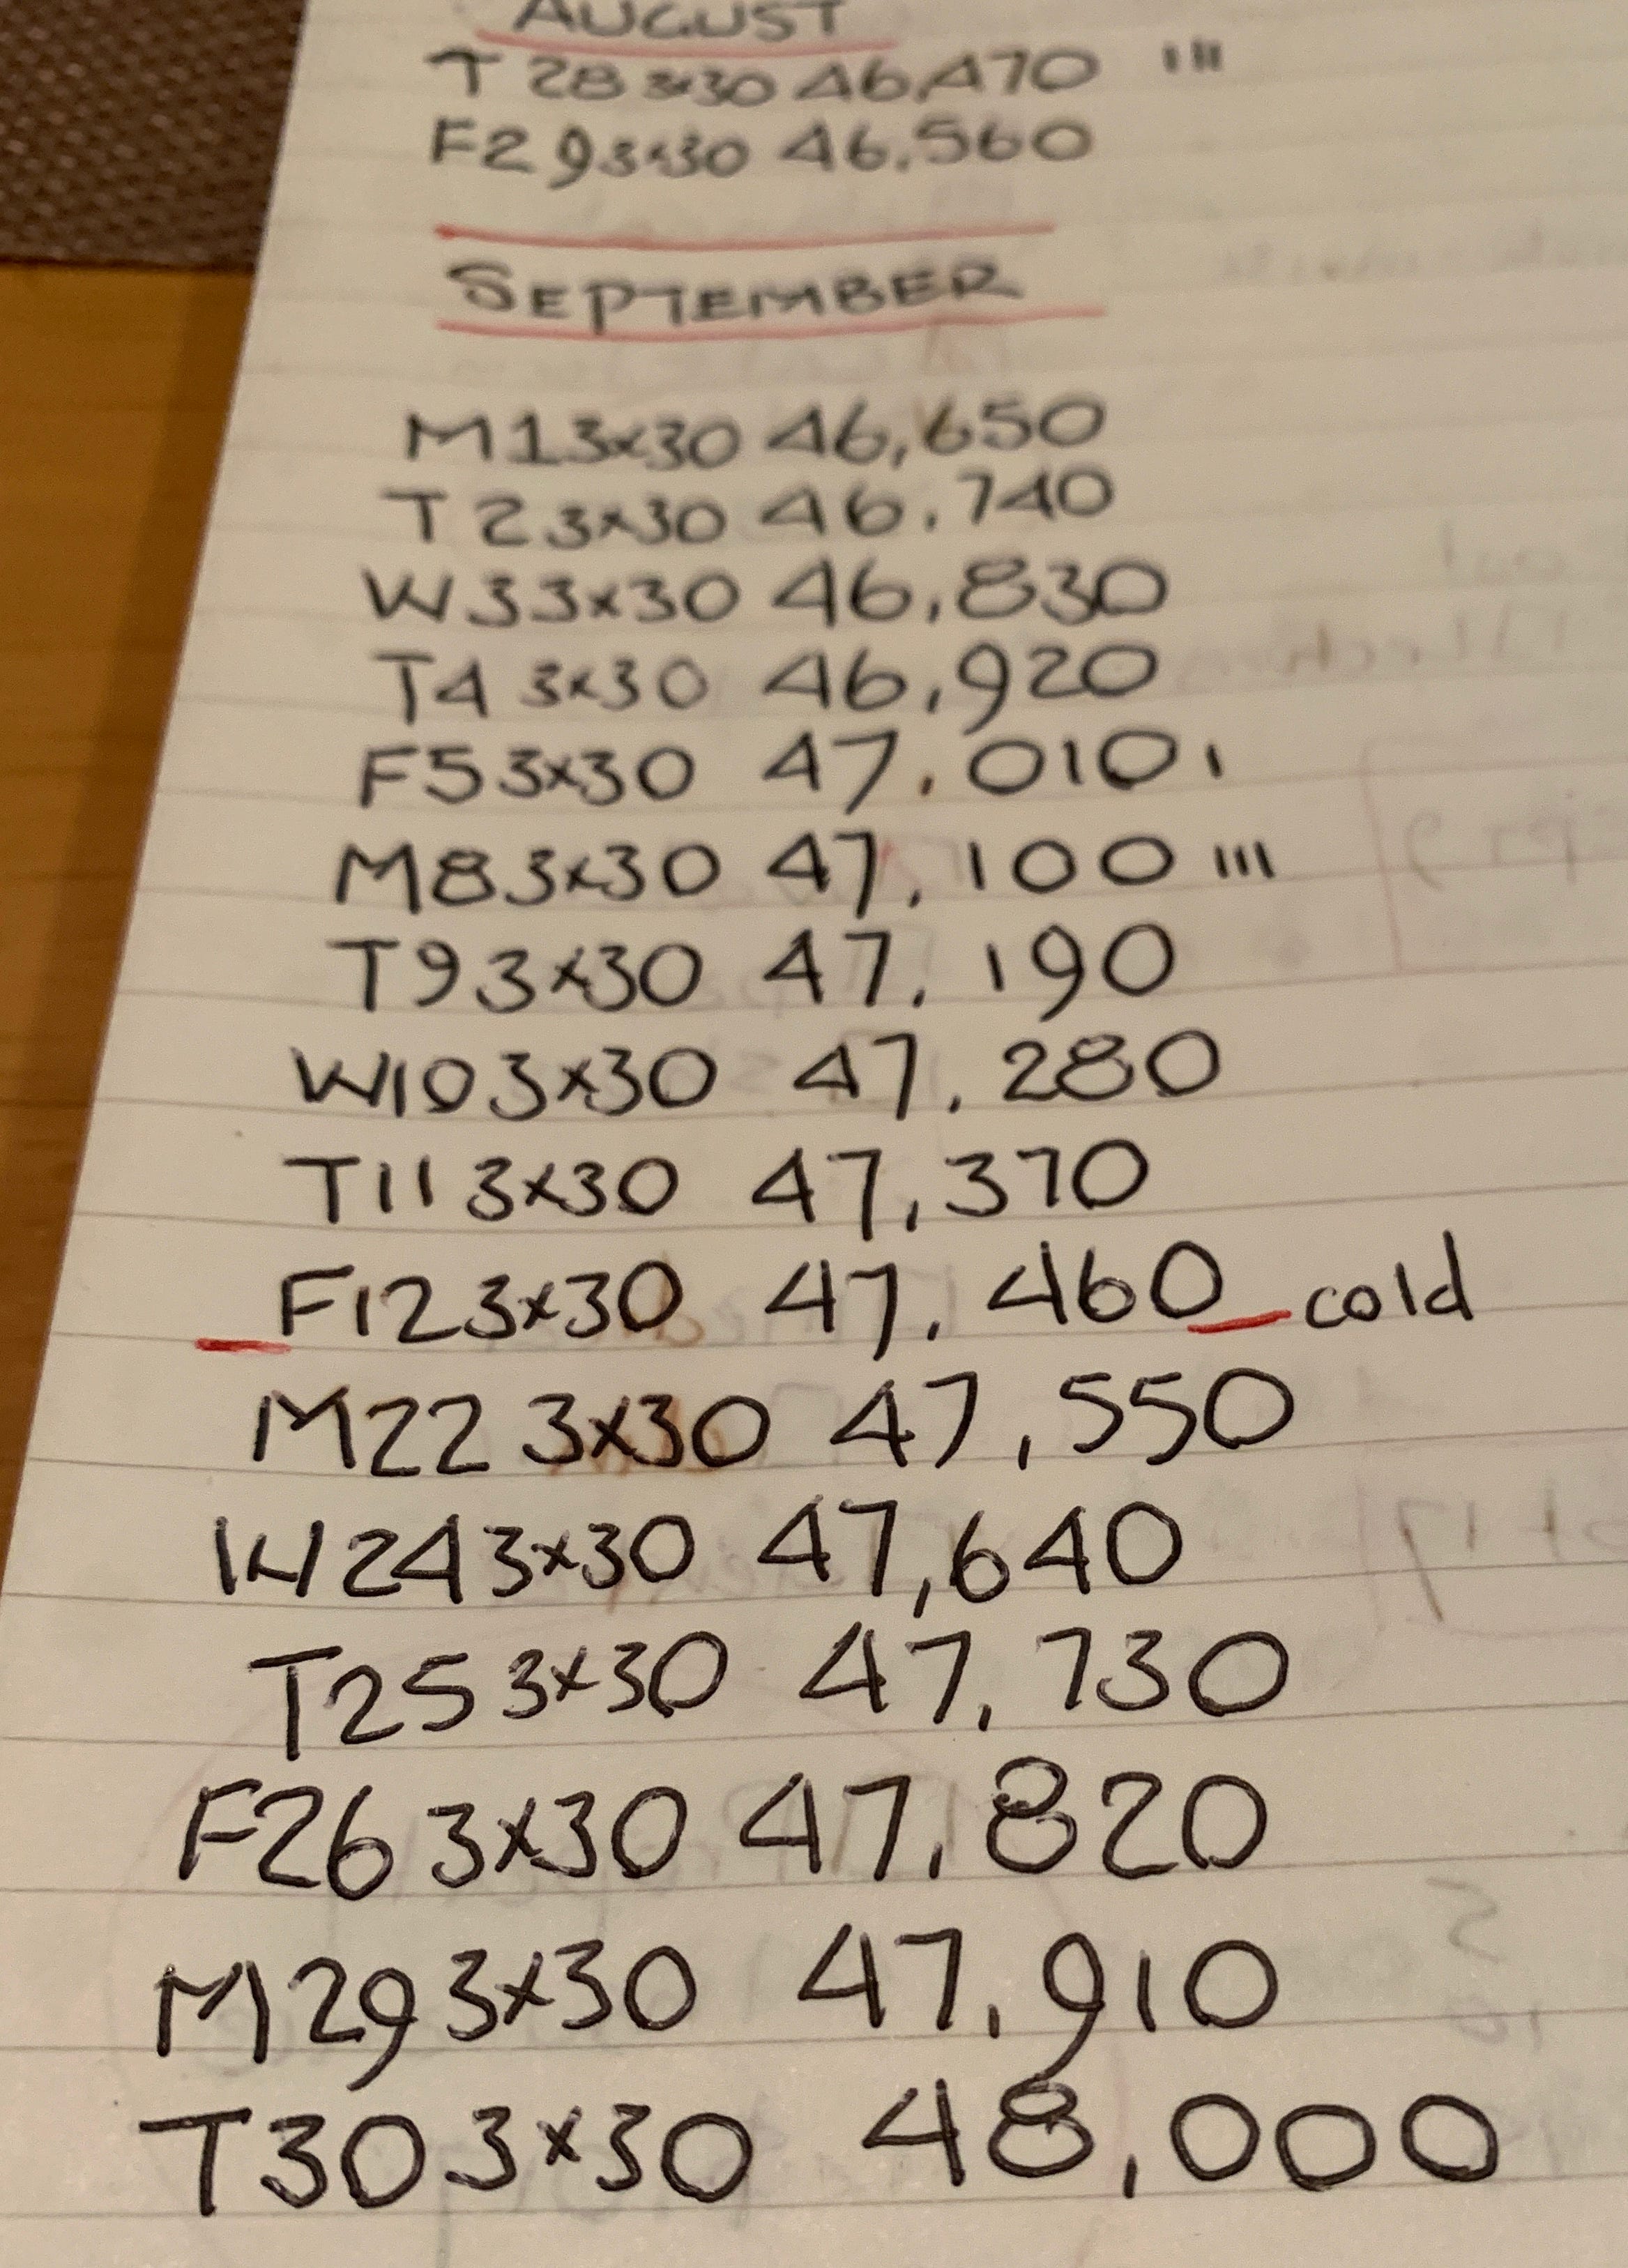 AUGUST
T 28 3x30 46,470 III
F29 3x30 46,560
SEPTEMBER
M1 3x30 46,650
T 2 3x30 46,740
W3 3x30 46,830
T4 3x30 46,920
F5 3x30 47,010 I
M8 3x30 47,100 III
T9 3x30 47,190
W10 3x30 47,280
T11 3x30 47,370
F12 3x30 47,460 cold
M22 3x30 47,550
W24 3x30 47,640
T25 3x30 47,730
F26 3x30 47,820
M29 3x30 47,910
T30 3x30 48,000